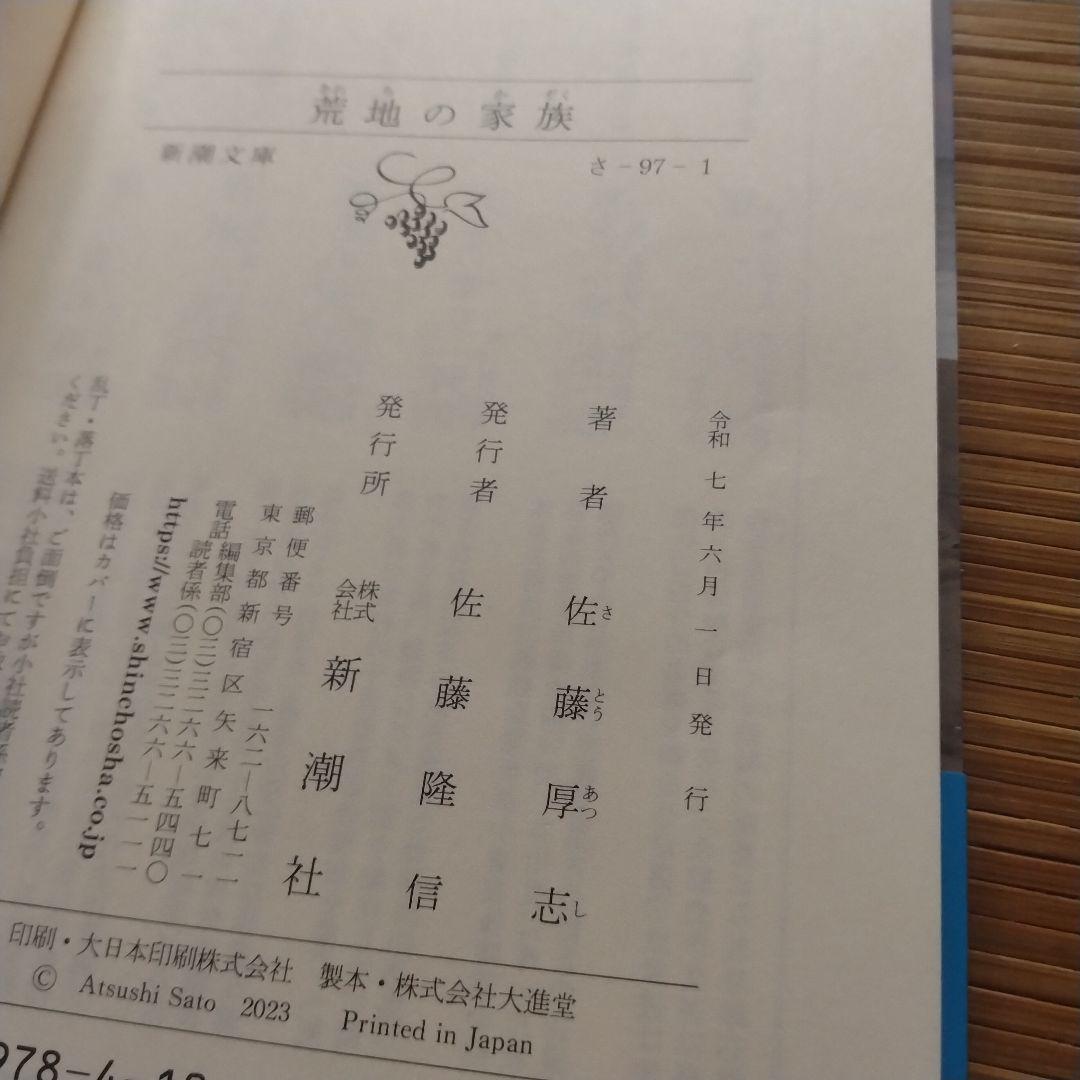 荒地の家族
新潮文庫
さ-97-1
令和七年六月一日発行
著者 佐藤厚志
さとうあつし
発行者 佐藤隆信
発行所 株式会社 新潮社
郵便番号 一六二―八七一一
東京都新宿区矢来町七一
電話 編集部(〇三)三二六六―五四四〇
読者係(〇三)三二六六―五一一一
https://www.shinchosha.co.jp
価格はカバーに表示してあります。
乱丁・落丁本は、ご面倒ですが小社読者係
ください。送料小社負担にてお
印刷・大日本印刷株式会社 製本・株式会社大進堂
© Atsushi Sato 2023 Printed in Japan
978-4-10